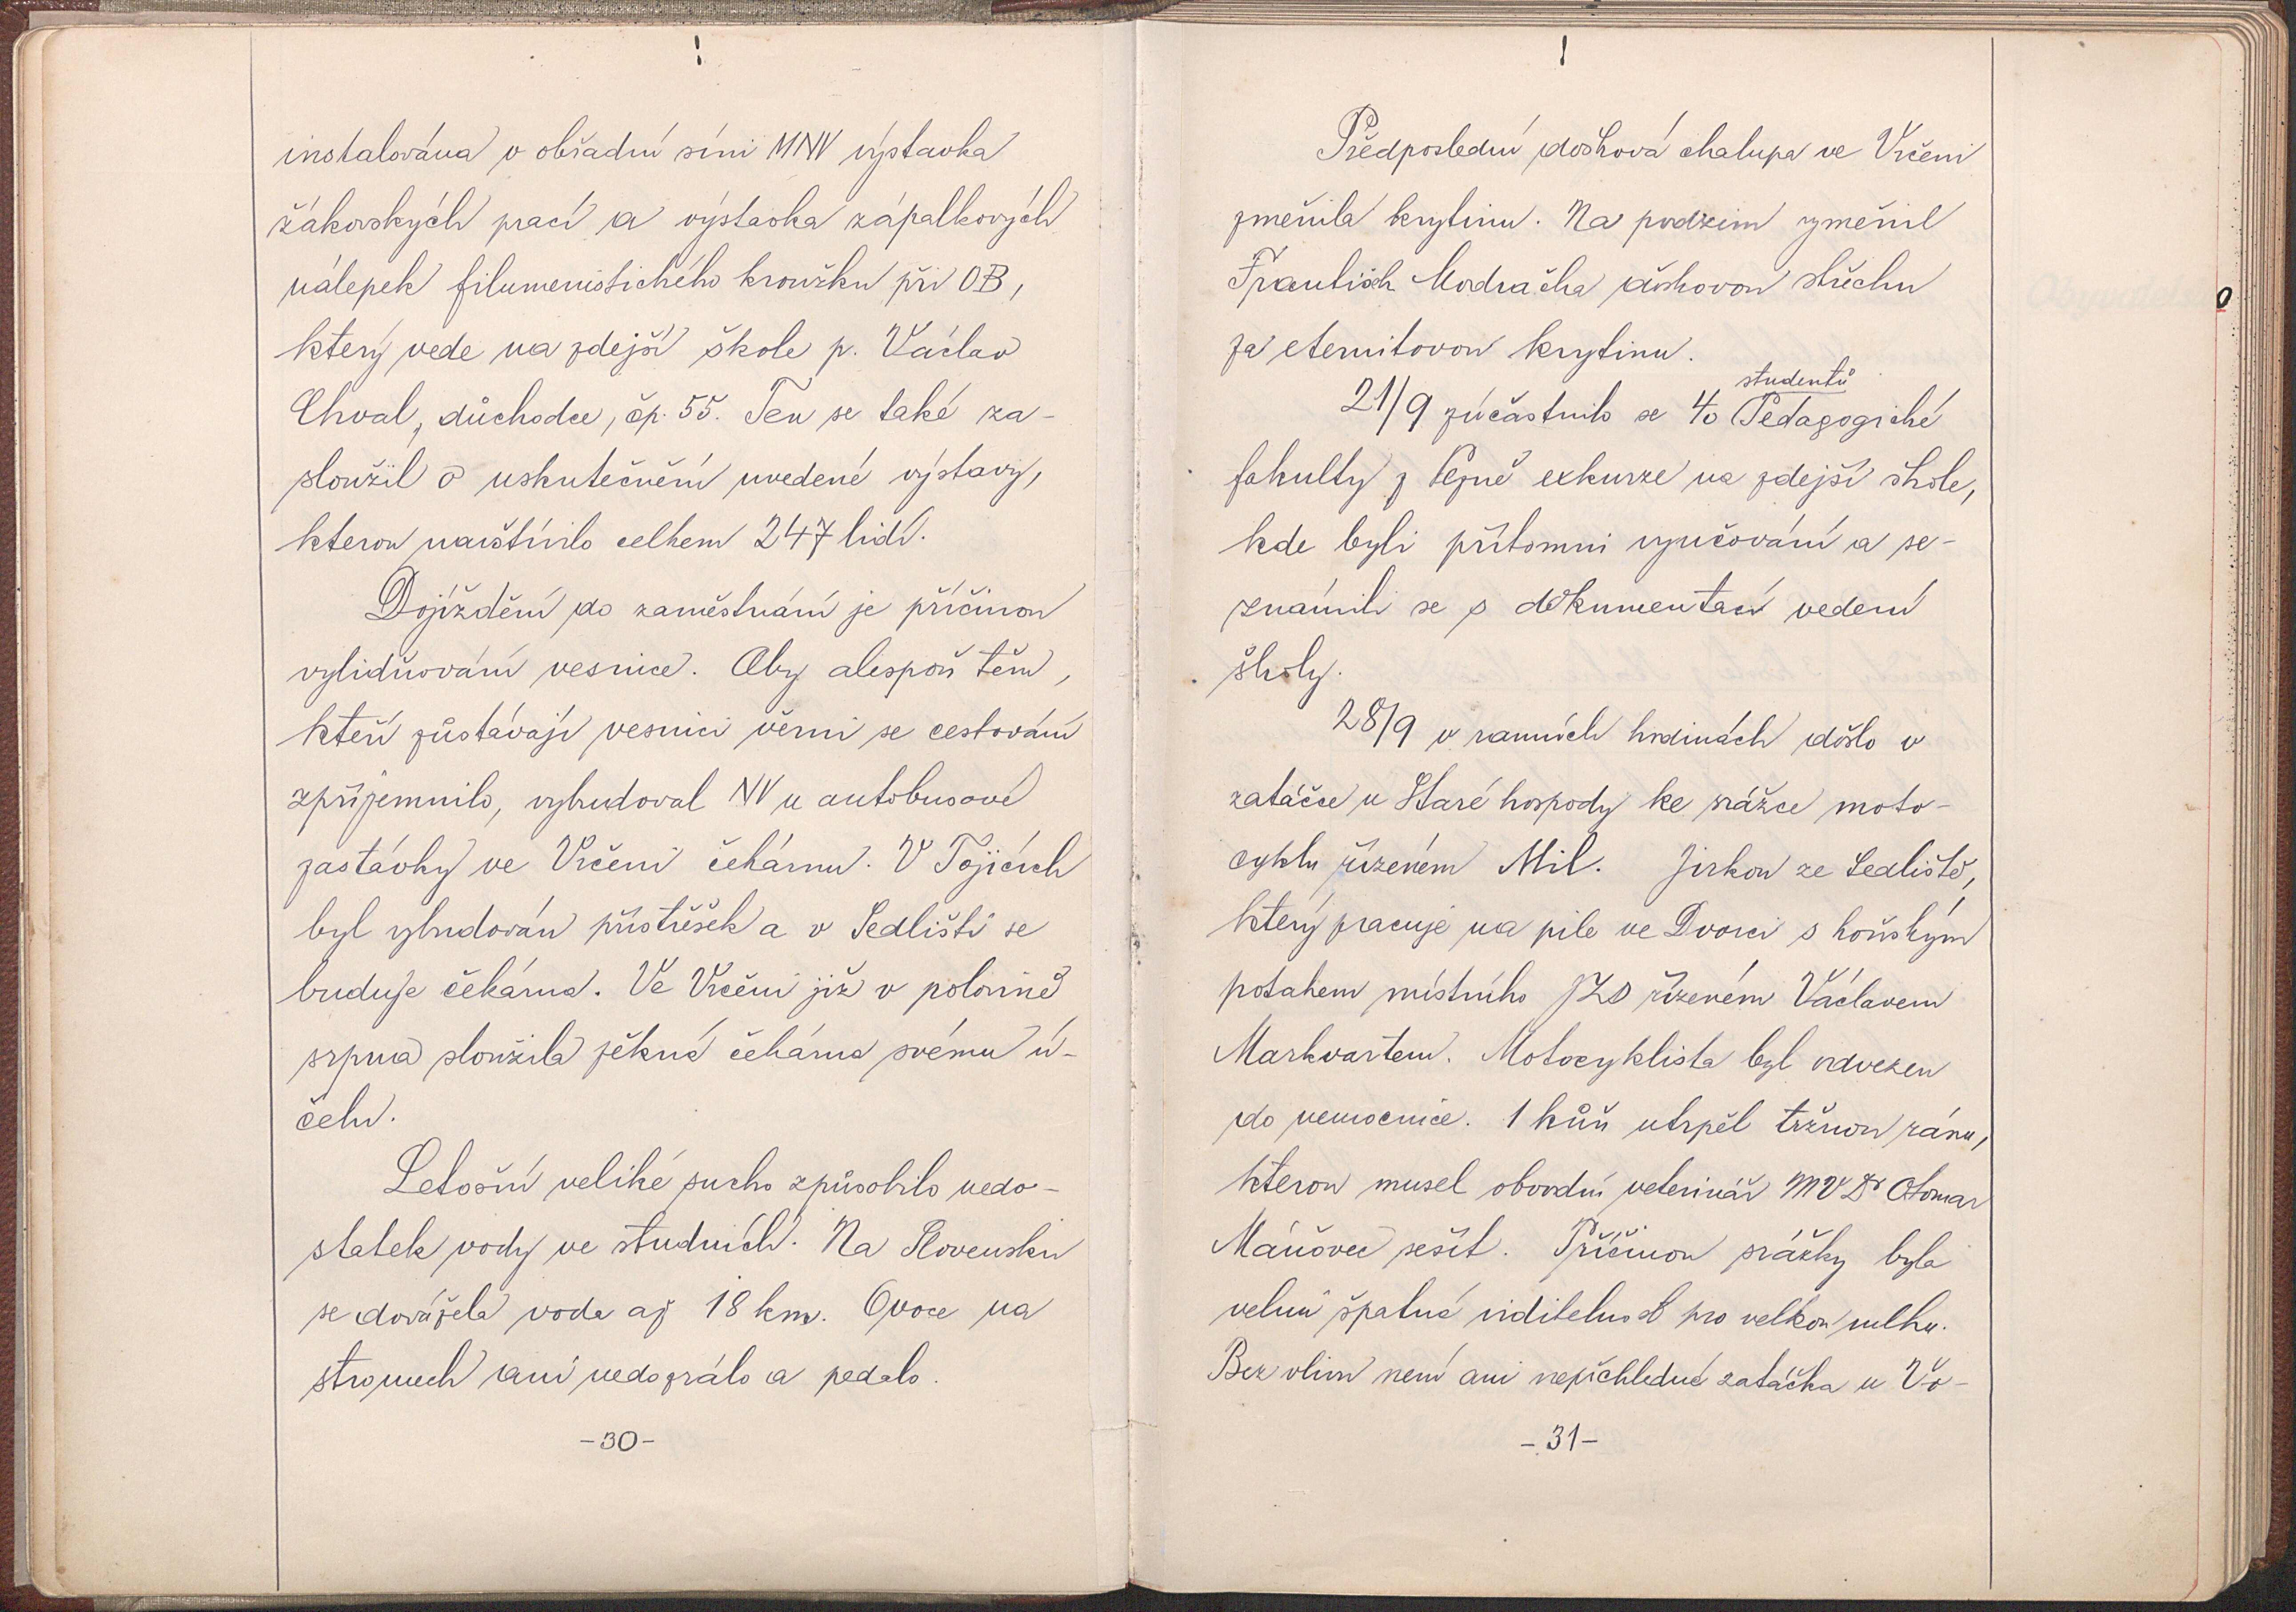 instalována v obřadní síni MNV výstavka
žákovských prací a výstavka zápalkových
nálepek filumenistického kroužku při OB,
který vede na zdejší škole p. Václav
Chval, důchodce, čp. 55. Ten se také za-
sloužil o uskutečnění uvedené výstavy,
kterou navštívilo celkem 247 lidí.
Dojíždění do zaměstnání je příčinou
vylidňování vesnice. Aby alespoň těm,
kteří zůstávají vesnici věrni se cestování
zpříjemnilo, vybudoval NV u autobusové
zastávky ve Vrčeni čekárnu. V Tojicích
byl vybudován přístřešek a v Sedlišti se
buduje čekárna. Ve Vrčeni již v polovině
srpna sloužila pěkná čekárna svému ú-
čelu.
Letošní veliké sucho způsobilo nedo-
statek vody ve studních. Na Slovensku
se dovážela voda až 18 km. Ovoce na
stromech ani nedozrálo a padalo.
-30-
Předposlední došková chalupa ve Vrčeni
změnila krytinu. Na podzim vyměnil
František Modračka doškovou střechu
za eternitovou krytinu.
studentů
21/9 zúčastnilo se 40 Pedagogické
fakulty z Plzně exkurze na zdejší škole,
kde byli přítomni vyučování a se-
známili se s dokumentací vedení
školy.
28/9 v ranních hodinách došlo v
zatáčce u Staré hospody ke srážce moto-
cyklu řízeném Mil. Jirkou ze Sedliště,
který pracuje na pile ve Dvorci s koňským
potahem místního JZD řízeném Václavem
Markvartem. Motocyklista byl odvezen
do nemocnice. 1 kůň utrpěl tržnou ránu,
kterou musel obvodní veterinář MVDr Otomar
Máňovec sešít. Příčinou srážky byla
velmi špatná viditelnost pro velkou mlhu.
Bez vlivu není ani nepřehledná zatáčka u Vo-
-31-